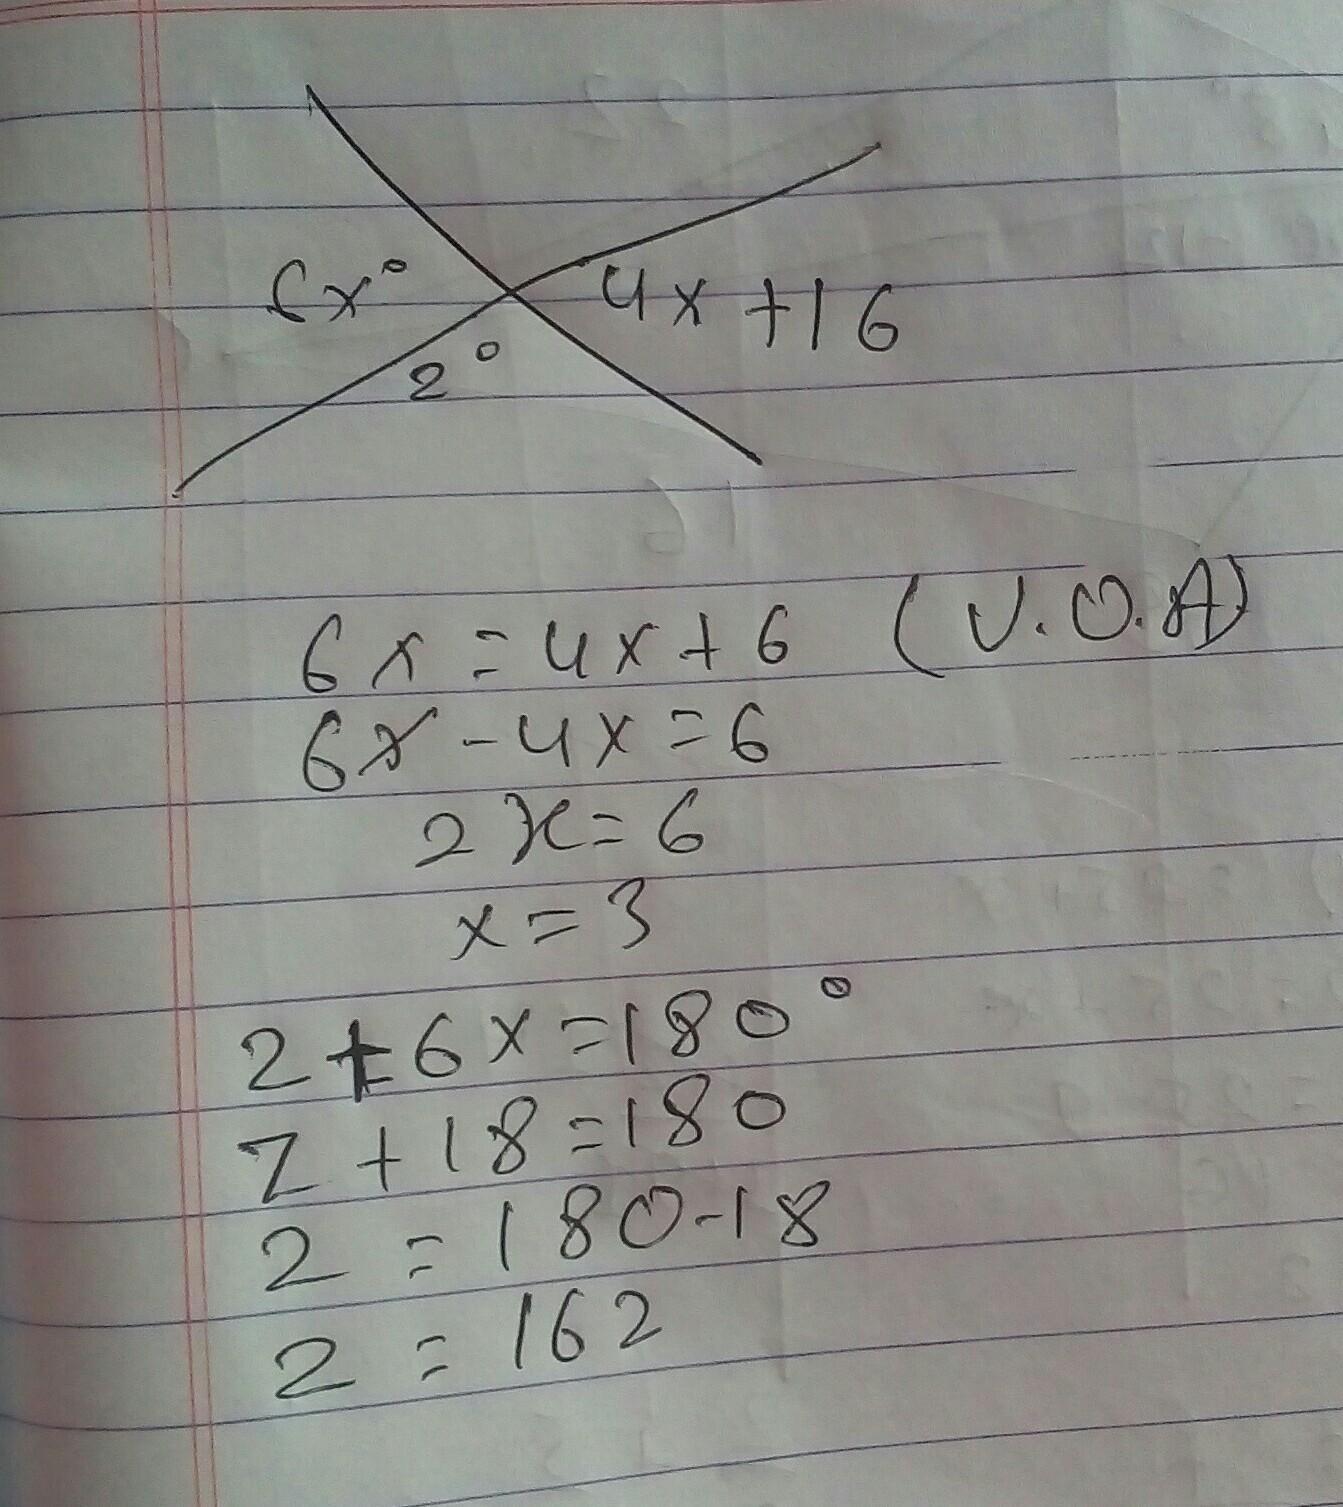 6x°
4x+16
2°
6x=4x+6 (V.O.A)
6x-4x=6
2x=6
x=3
2+6x=180°
Z+18=180
2=180-18
2=162